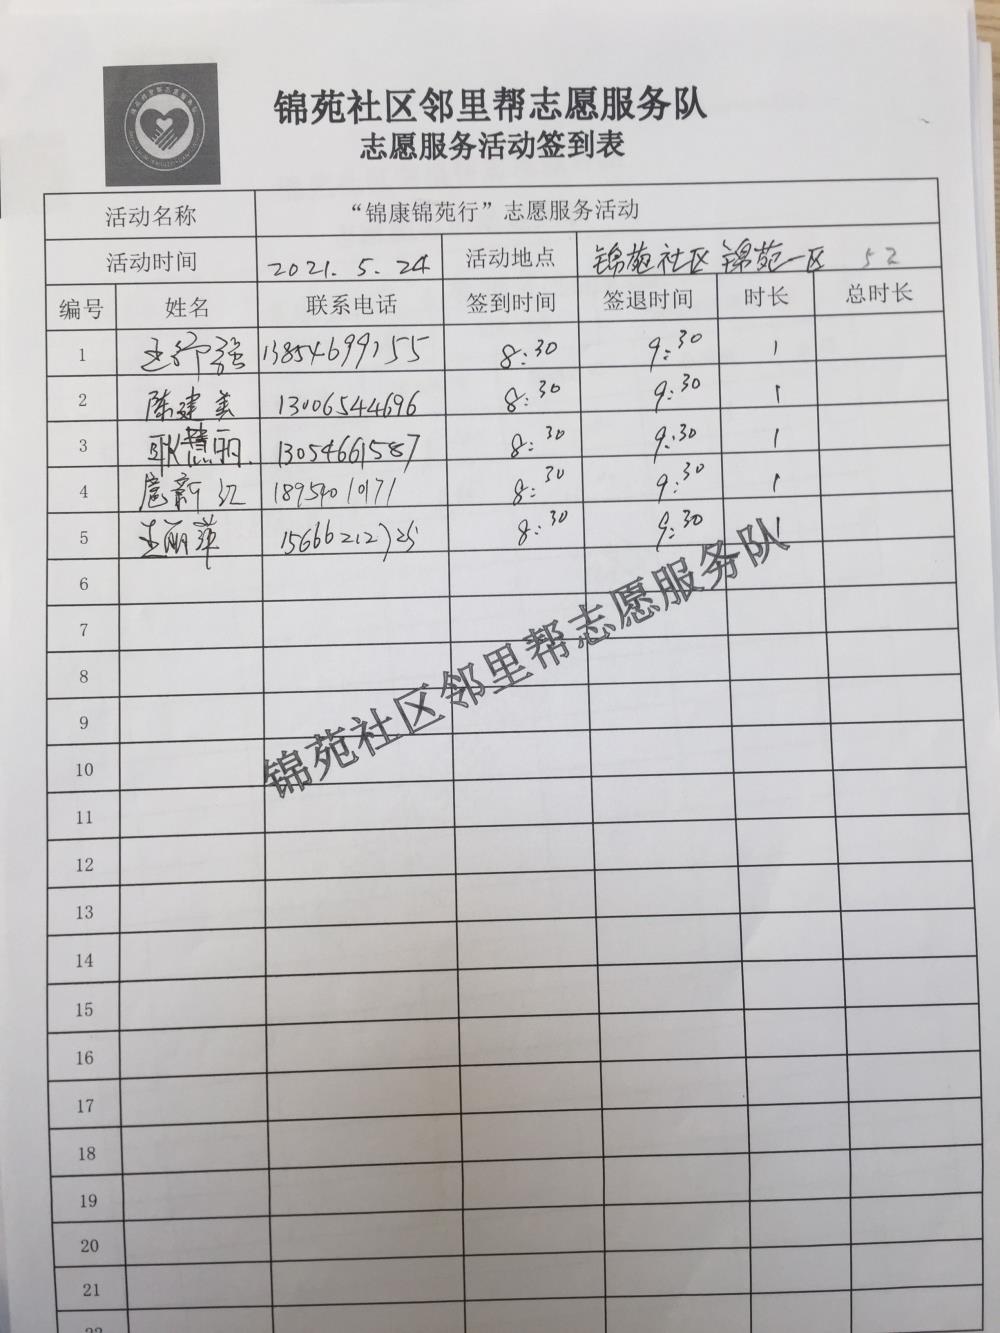 锦苑社区邻里帮志愿服务队
志愿服务活动签到表
活动名称 “锦康锦苑行”志愿服务活动
活动时间 2021.5.24 活动地点 锦苑社区 锦苑一区 52
编号 姓名 联系电话 签到时间 签退时间 时长 总时长
1 13854699155 8:30 9:30 1
2 陈建美 13006544696 8:30 9:30 1
3 耿慧丽 13054661587 8:30 9:30 1
4 8:30 9:30 1
5 王丽萍 8:30 9:30 1
6
7
8
9
10
11
12
13
14
15
16
17
18
19
20
21
22
锦苑社区邻里帮志愿服务队